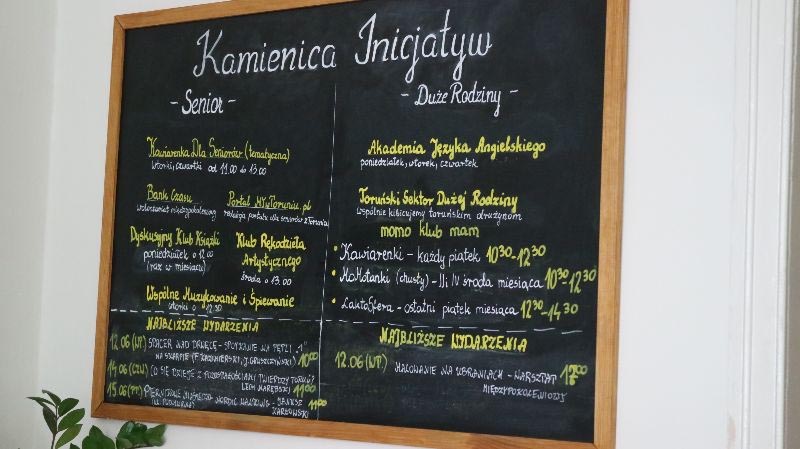 Kamienica Inicjatyw
- Senior -
Kawiarenka Dla Seniorów (tematyczna)
wtorki, czwartki od 11.00 do 13.00
Bank Czasu
wolontariat międzypokoleniowy
Portal MyWToruniu.pl
redakcja portalu dla seniorów z Torunia
Dyskusyjny Klub Książki
poniedziałek o 12.00
(raz w miesiącu)
Klub Rękodzieła
Artystycznego
środa o 13.00
Wspólne Muzykowanie i Śpiewanie
wtorki o 12.30
NAJBLIŻSZE WYDARZENIA
12.06 (WT.) SPACER NAD DRWĘCĘ - SPOTKANIE NA PĘTLI „1"
NA SKARPIE 10:00
14.06 (CZW.) CO SIĘ DZIEJE Z POZOSTAŁOŚCIAMI TWIERDZY TORUŃ?
LECH NAREBSKI 11:00
15.06 (PT.) NORDIC WALKING - JANUSZ
KARŁOWSKI 11:00
- Duże Rodziny -
Akademia Języka Angielskiego
poniedziałek, wtorek, czwartek
Toruński Sektor Dużej Rodziny
wspólnie kibicujemy toruńskim drużynom
momo klub mam
• Kawiarenki - każdy piątek 10:30-12:30
• MoMotanki (chusty) - II i IV środa miesiąca 10:30-12:30
• LaktoSfera - ostatni piątek miesiąca 12:30-14:30
NAJBLIŻSZE WYDARZENIA
12.06 (WT.) MALOWANIE NA UBRANIACH - WARSZTAT 17:00
MIĘDZYPOKOLENIOWY